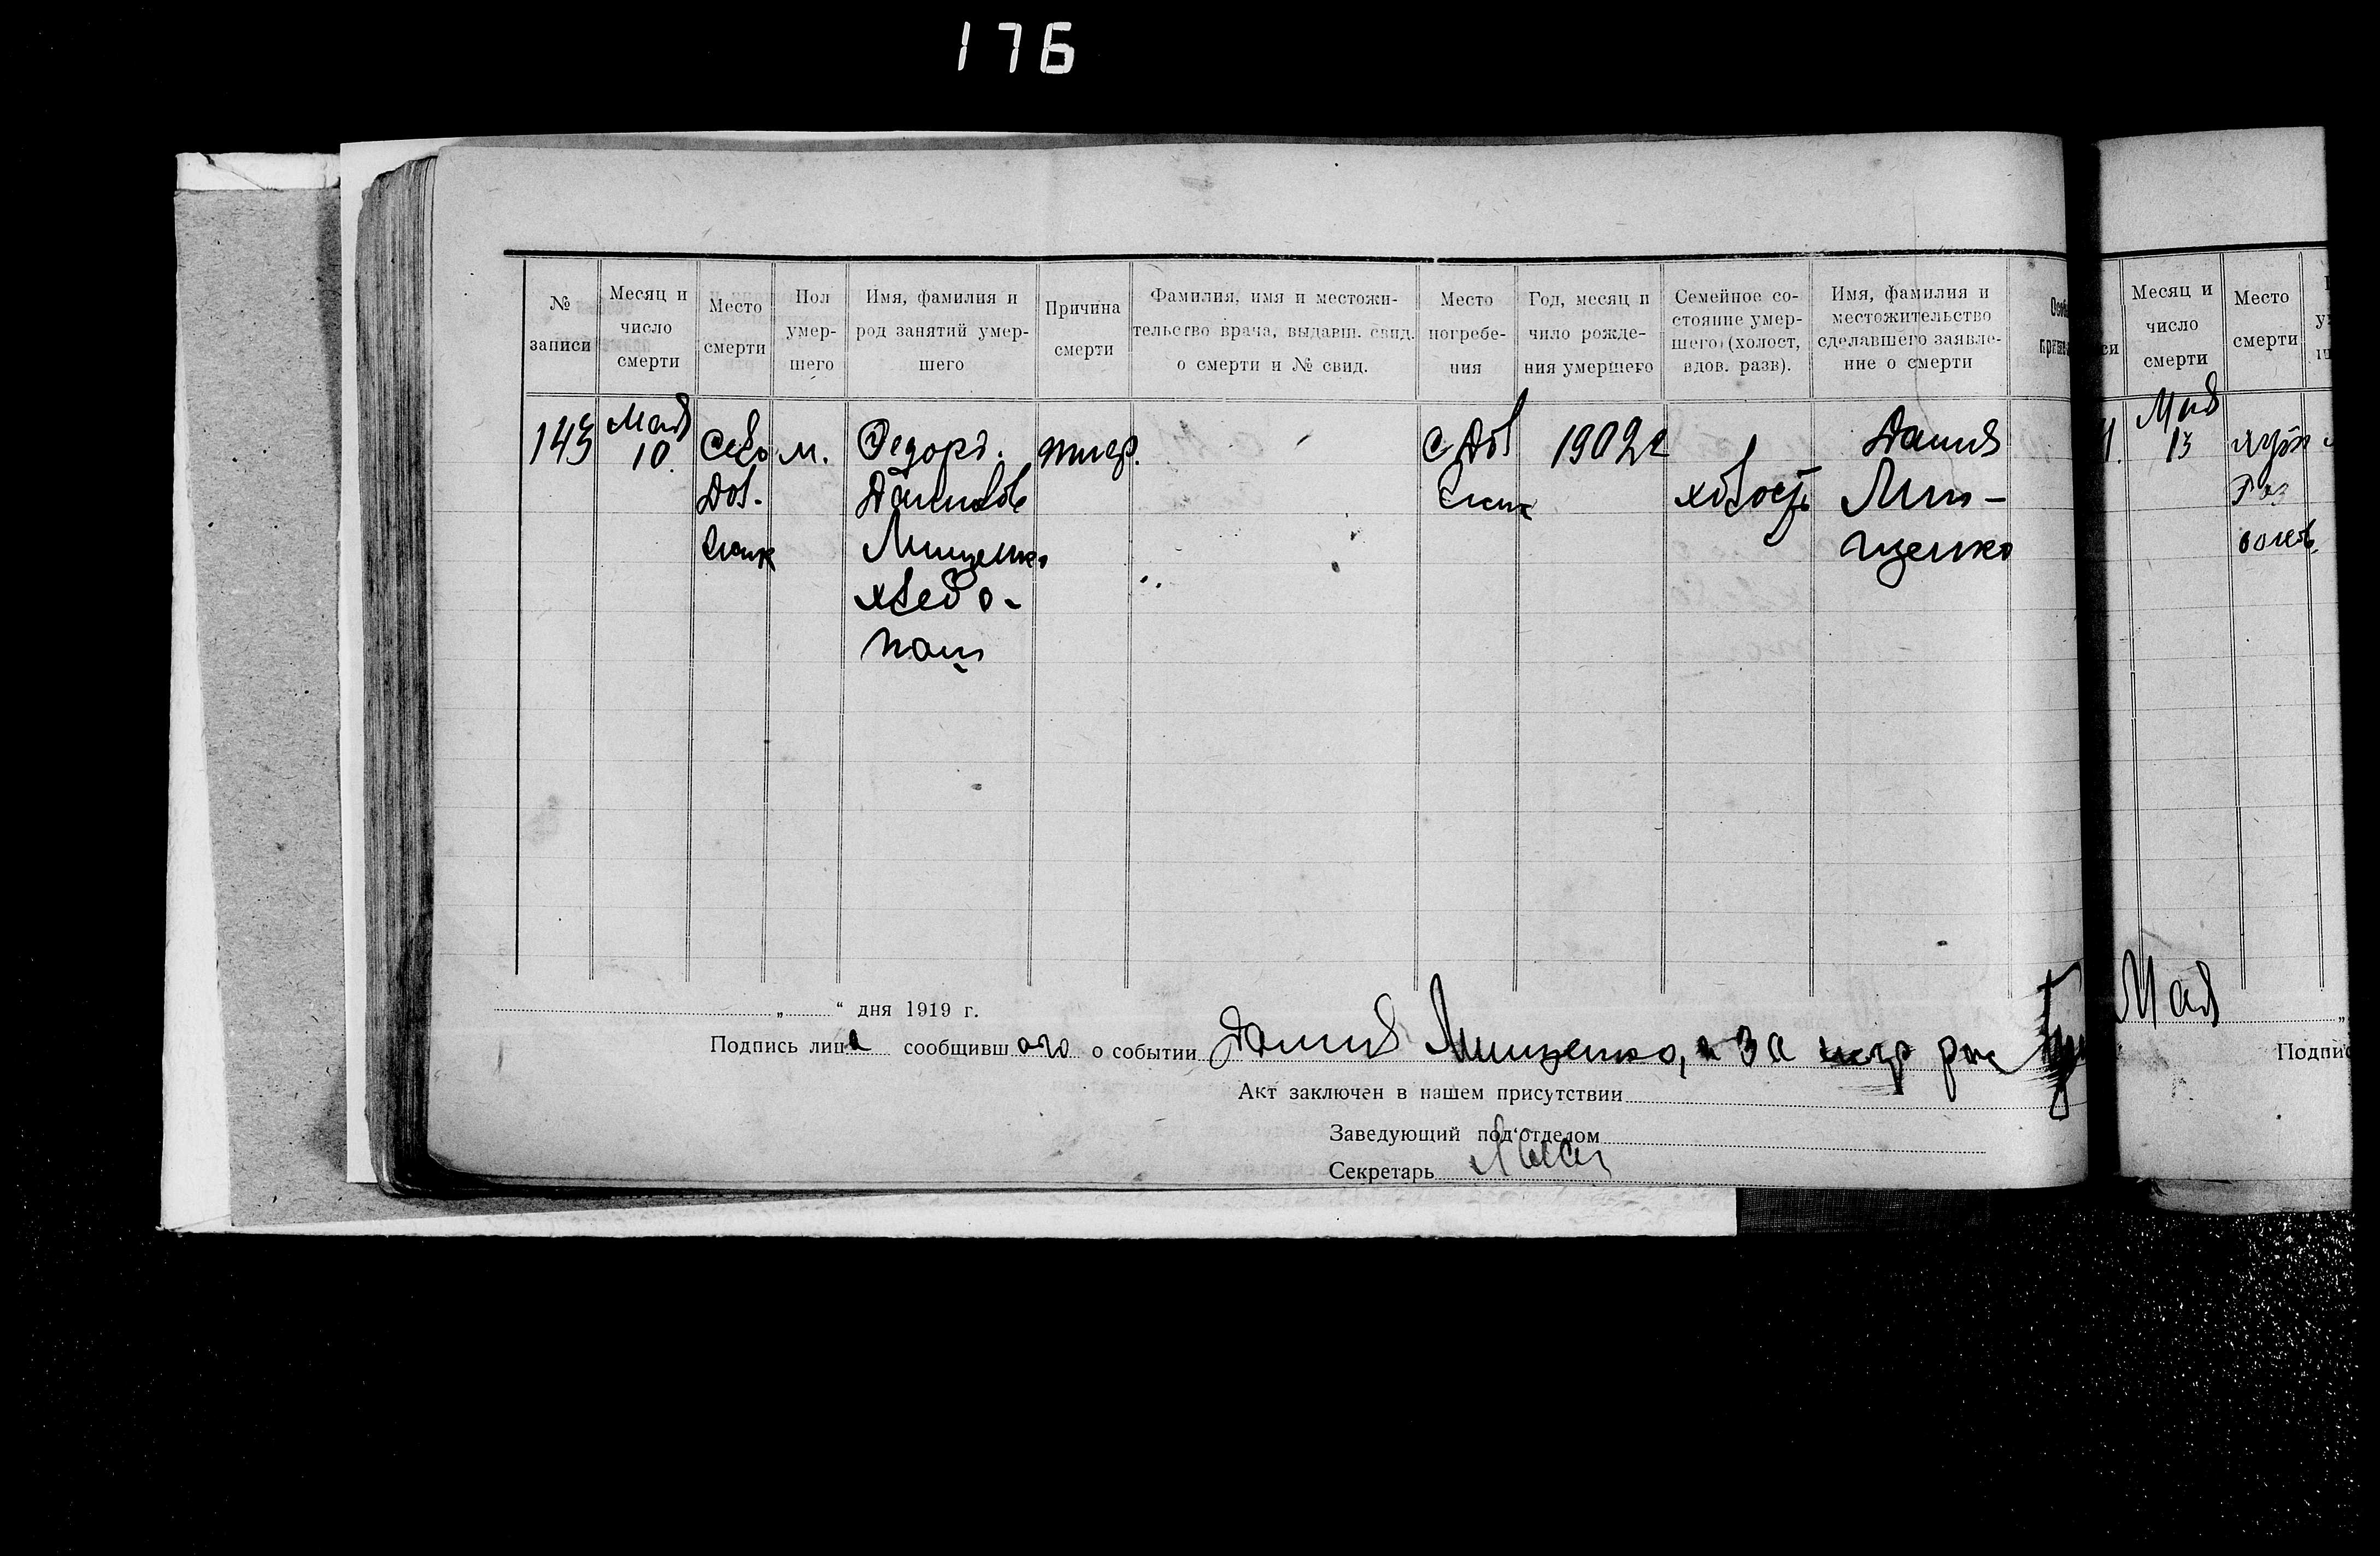 176
№ записи
Месяц и число смерти
Место смерти
Пол умершего
Имя, фамилия и род занятий умершего
Причина смерти
Фамилия, имя и местожительство врача, выдавш. свид. о смерти и № свид.
Место погребения
Год, месяц и чило рождения умершего
Семейное состояние умершего (холост, вдов. разв).
Имя, фамилия и местожительство сделавшего заявление о смерти
143
Мая
10
Село
Дов-
м.
Федоръ
Данилов
Мищенко
хлебо-
паш
тиф.
с Дов
1902 г
холость
Данил
Ми-
щенко
„ “ дня 1919 г.
Подпись лица сообщившаго о событии Данил Мищенко, а за негр рас
Акт заключен в нашем присутствии
Заведующий под'отделом
Секретарь
Месяц и число смерти
Место смерти
Мая
13
Мая